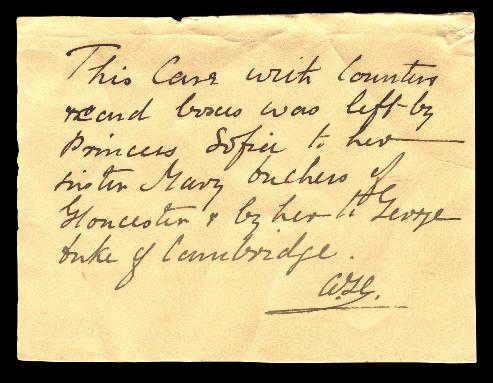 This Case with Counters
& card boxes was left by
Princess Sofia to her
sister Mary Duchess of
Gloucester & by her to George
Duke of Cambridge.
A.F.G.